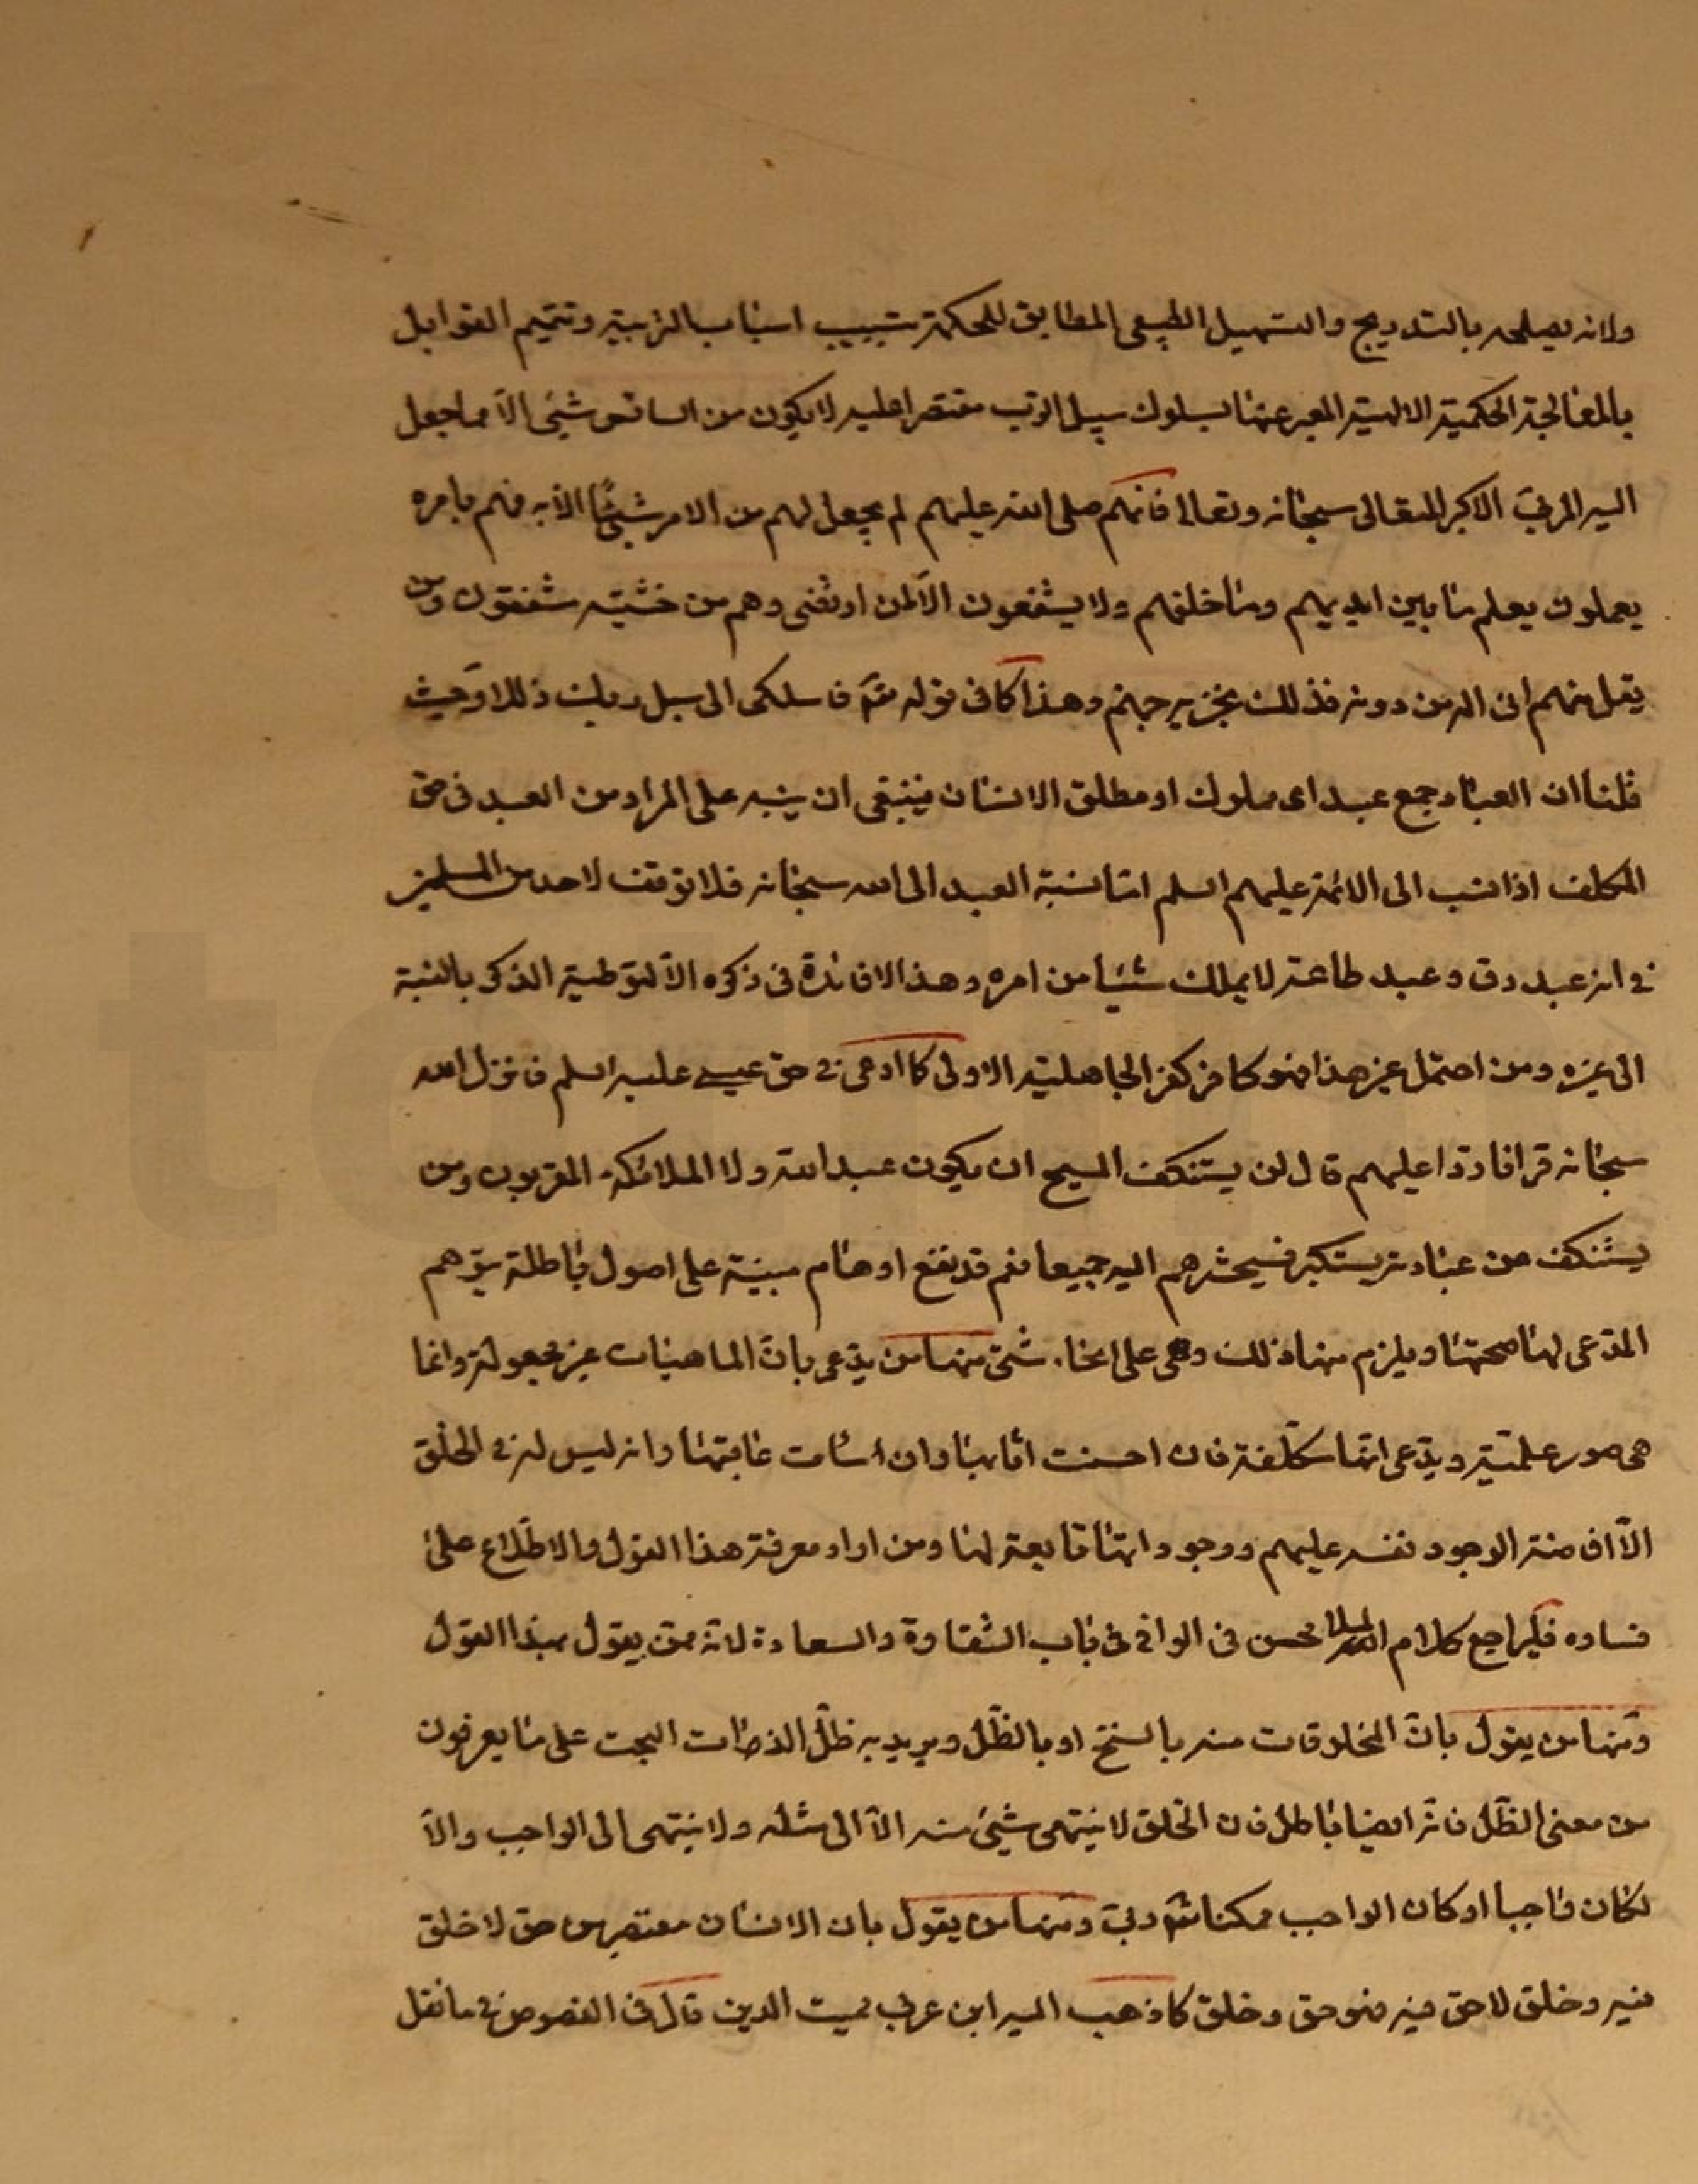 ولانه يصلحه بالتدريج والتسهيل الطبيعى المطابق للحكمة بتسبيب اسباب التربية وتتميم القوابل
بالمعالجة الحكمية الالهية المعبر عنها بسلوك سبيل الرب مقتصرا عليه لا يكون من السائس شيئ الا مما جعل
اليه المربى الاكبر المتعالى سبحانه وتعالى فانهم صلى الله عليهم لم يجعل لهم من الامر شيئا الا به فهم بامره
يعملون يعلم ما بين ايديهم وما خلفهم ولا يشفعون الا لمن ارتضى وهم من خشيته مشفقون ومن
يقل منهم انى اله من دونه فذلك نجزيه جهنم وهذا كما فى قوله تعم فاسلكى الى سبل ربك ذللا وحيث
قلنا ان العباد جمع عبد اى مملوك او مطلق الانسان فينبغى ان ينبه على المراد من العبد فى حق
المكلف اذا نسب الى الائمة عليهم السلم اما نسبة العبد الى الله سبحانه فلا توقف لاحد من المسلمين
فى انه عبد رق وعبد طاعة لا يملك شيئا من امره وهذا لا فائدة فى ذكره الا لتوطية الذكر بالنسبة
الى غيره ومن احتمل غير هذا فهو كافر كفر الجاهلية الاولى كما ادعى فى حق عيسى عليه السلم فانزل الله
سبحانه قرانا ردا عليهم قال لن يستنكف المسيح ان يكون عبدا لله ولا الملائكة المقربون ومن
يستنكف عن عبادته يستكبر فسيحشرهم اليه جميعا نعم قد تقع اوهام مبنية على اصول باطلة يتوهم
المدعى لها صحتها ويلزم منها ذلك وهى على انحاء شتى منها من يدعى بان الماهيات غير مجعولة وانما
هى صور علمية ويدعى انها مكلفة فان احسنت اثابها وان اسائت عاقبتها وانه ليس له فى الخلق
الا افاضة الوجود نفسه عليهم ووجوداتها تابعة لها ومن اراد معرفة هذا القول والاطلاع على
فساده فليراجع كلام الملا محسن فى الوافى فى باب الشقاوة والسعادة لانه ممن يقول بهذا القول
ومنها من يقول بان المخلوقات منه بالسنخ او بالظل ويريد به ظل الذات البحت على ما يعرفون
من معنى الظل فانه ايضا باطل فان الخلق لا ينتهى شيئ منه الا الى مثله ولا ينتهى الى الواجب والا
لكان واجبا او كان الواجب ممكنا تعم ربى ومنها من يقول بان الانسان معتصر من حق لا خلق
فيه وخلق لا حق فيه فهو حق وخلق كما ذهب اليه ابن عربى مميت الدين قال فى الفصوص فى ما نقل